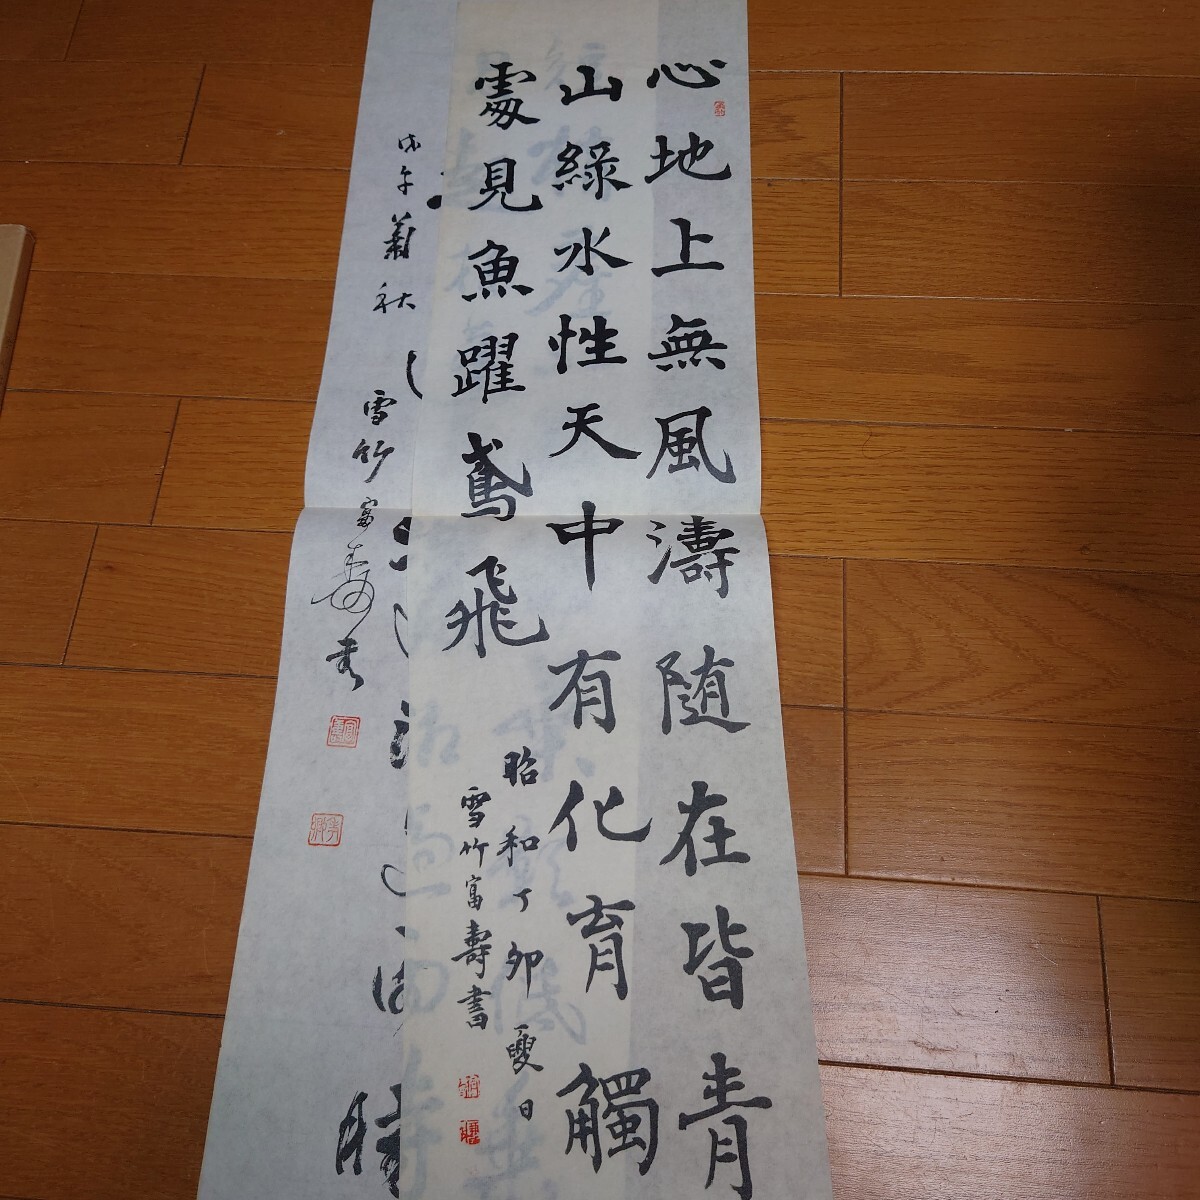 心地上無風濤随在皆青
山綠水性天中有化育觸
處見魚躍鳶飛
昭和丁卯夏日
雪竹富壽書
戊午蕭秋
雪竹富壽書
時